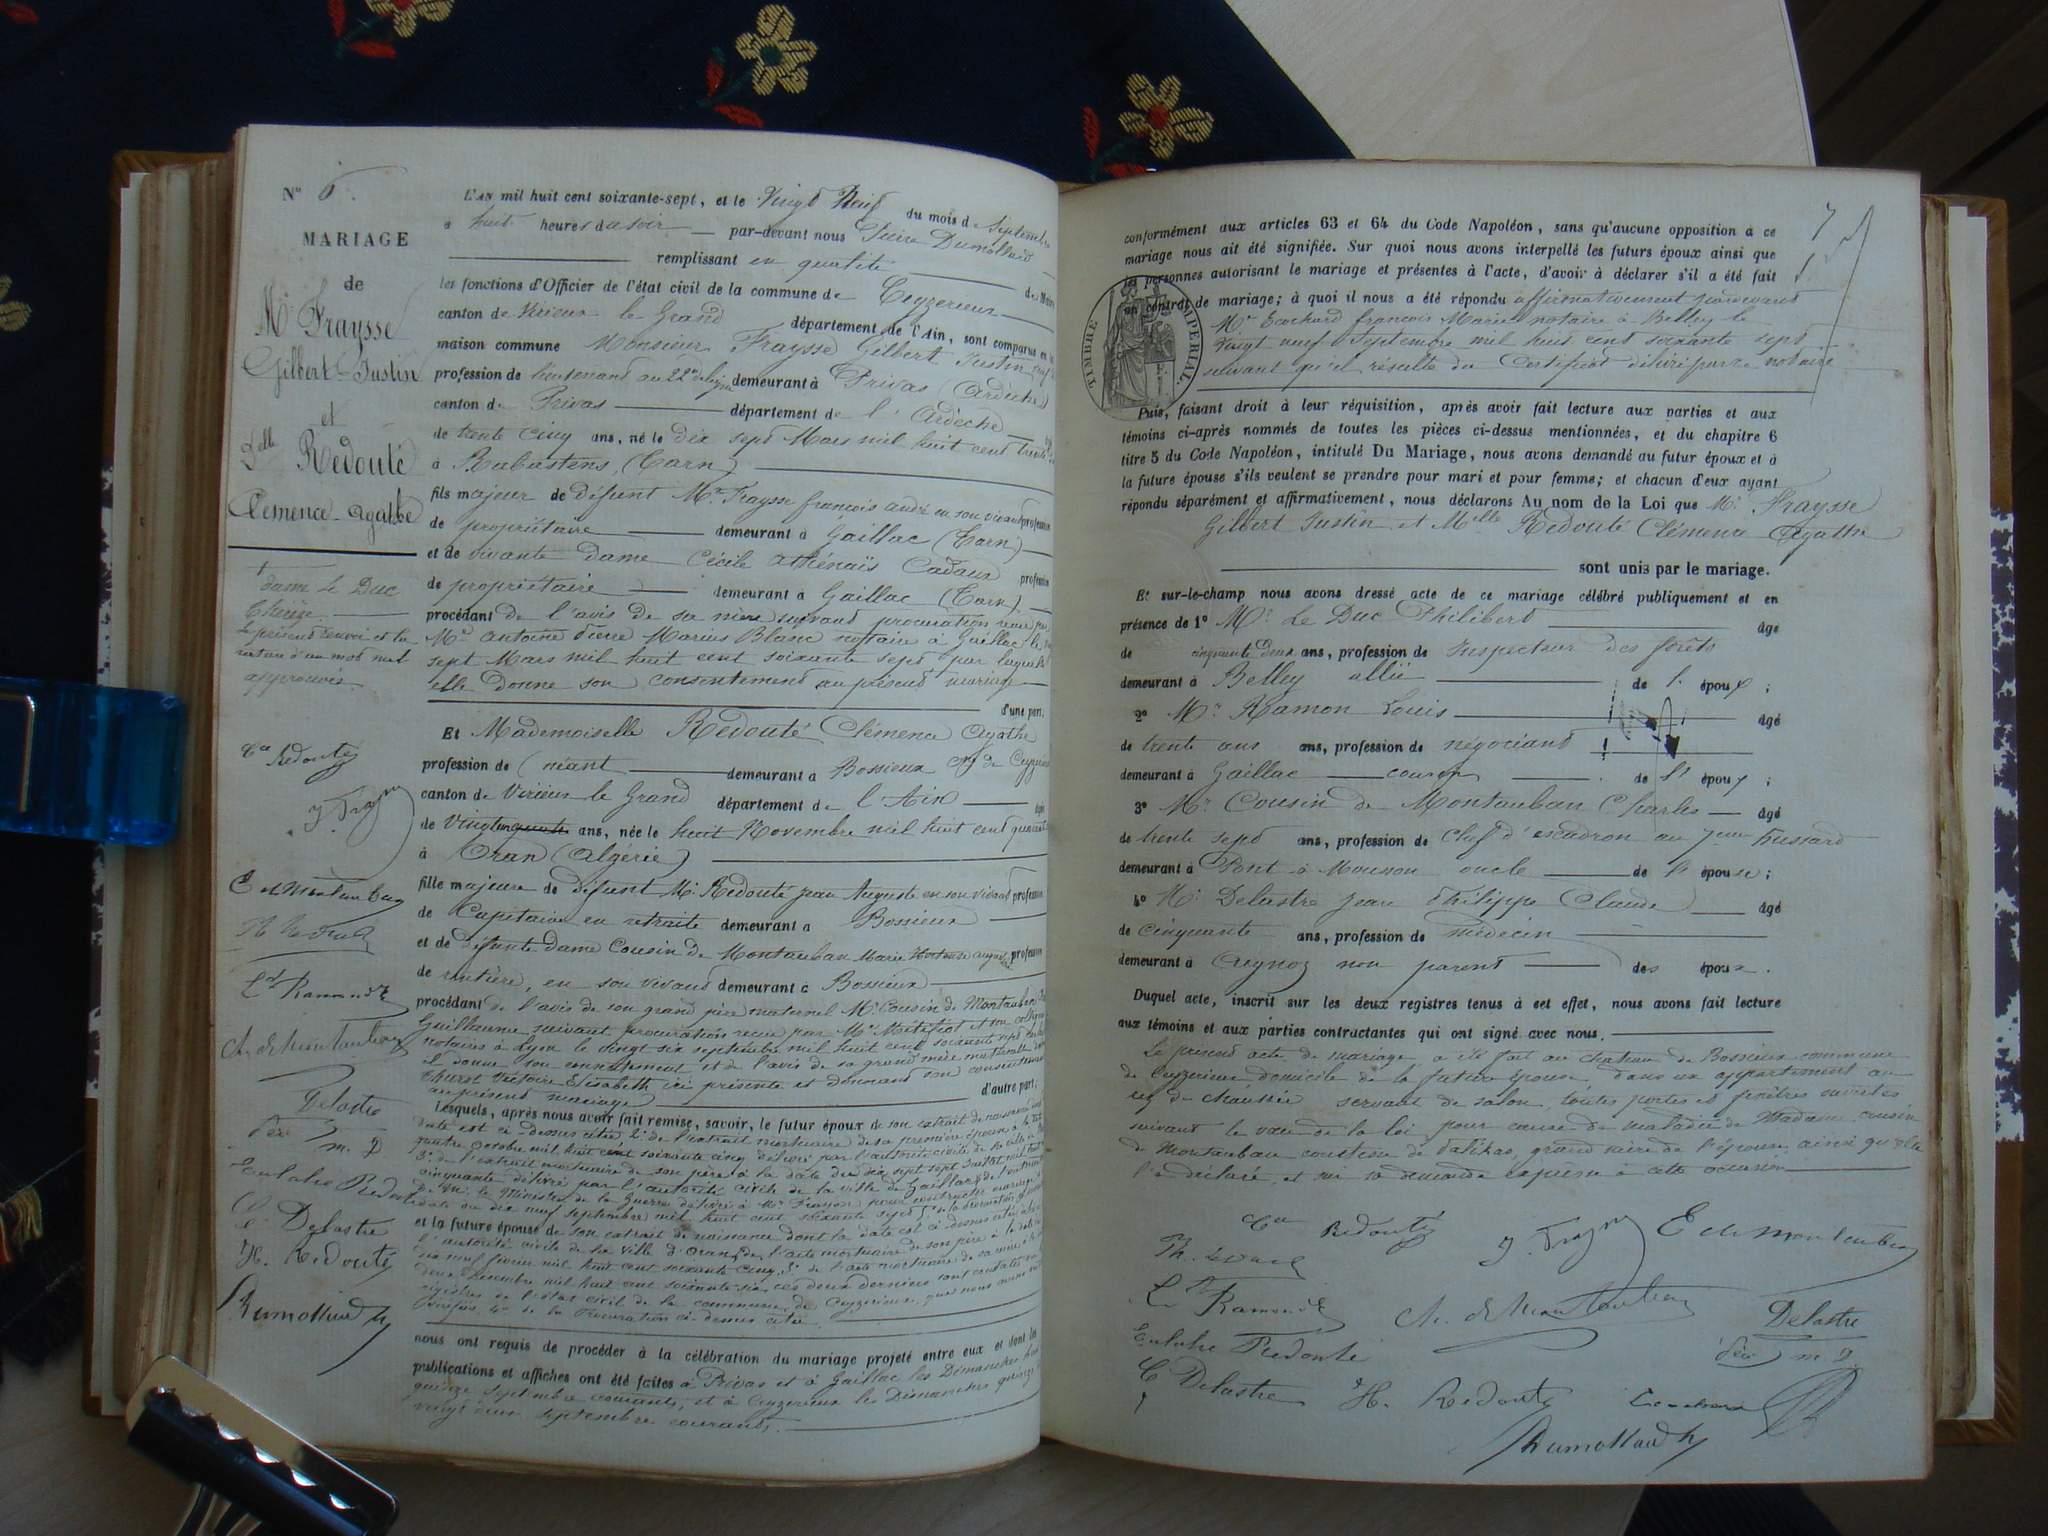 N° 6.
MARIAGE
de
Mr Fraysse
Gilbert-Justin
et
Delle Redouté
Clémence-Agathe
dame Le Duc
Le présent renvoi et la
rature d'un mot nul
approuvés
Cce Redouté
J. Fraysse
E de Montauban
Ls Ramond
Ch. de Montauban
Delastre
m. D
Eulalie Redouté
C. Delastre
H. Redouté
Dumollard
L'AN mil huit cent soixante-sept, et le vingt Neuf du mois de Septembre
à huit heures du soir — par-devant nous Pierre Dumollard
remplissant en qualité de Maire
les fonctions d'Officier de l'état civil de la commune de Ceyzerieux
canton de Virieux le Grand département de l'Ain, sont comparus en la
maison commune Monsieur Fraysse Gilbert Justin
profession de lieutenant au 22e de ligne demeurant à Privas (Ardèche)
canton de Privas département de l'Ardèche
de trente cinq ans, né le dix sept Mars mil huit cent trente
à Rabastens (Tarn)
fils majeur de défunt Mr Fraysse françois andré en son vivant profession
de propriétaire demeurant à Gaillac (Tarn)
et de vivante dame Cécile Athénaïs Cadaux profession
de propriétaire demeurant à Gaillac (Tarn)
procédant de l'avis de sa mère suivant procuration reçue par
Me Antoine Pierre Marius Blanc notaire à Gaillac le
sept Mars mil huit cent soixante sept par laquelle
elle donne son consentement au présent mariage
d'une part;
Et Mademoiselle Redouté Clémence Agathe
profession de (néant) demeurant à Bossieux
canton de Virieux le Grand département de l'Ain
de vingt ans, née le huit Novembre mil huit cent quarante
à Oran (Algérie)
fille majeure de défunt Mr Redouté Jean Auguste en son vivant profession
de Capitaine en retraite demeurant à Bossieux
et de défunte dame Cousin de Montauban Marie Hortense profession
de rentière, en son vivant demeurant à Bossieux
procédant de l'avis de son grand père maternel Mr Cousin de Montauban
Guillaume suivant procuration reçue par Me et son collègue
notaires à Lyon le vingt six septembre mil huit cent soixante sept
il donne son consentement et de l'avis de sa grand mère maternelle
Victoire Elisabeth ici présente et donnant son consentement
au présent mariage d'autre part;
Lesquels, après nous avoir fait remise, savoir, le futur époux de son extrait de naissance dont la
date est ci-dessus citée, 2° de l'extrait mortuaire de sa première épouse à la date
quatre octobre mil huit cent soixante cinq délivré par l'autorité civile de la ville
3° de l'extrait mortuaire de son père à la date du dix sept Juillet mil huit cent
cinquante délivré par l'autorité civile de la ville de Gaillac
Mr le Ministre de la Guerre délivrée à Mr Fraysse pour contracter mariage
date du dix neuf septembre mil huit cent soixante sept
et la future épouse de son extrait de naissance dont la date est ci-dessus citée
l'autorité civile de la ville d'Oran, de l'acte mortuaire de son père à la date
dix neuf février mil huit cent soixante cinq, 3° de l'acte mortuaire de sa mère
deux Décembre mil huit cent soixante six ces deux derniers sont constatés
régistres de l'état civil de la commune de Ceyzerieux, que nous avons
4° de la Procuration ci-dessus citée
nous ont requis de procéder à la célébration du mariage projeté entre eux et dont les
publications et affiches ont été faites à Privas et à Gaillac les Dimanches
quinze septembre courants, et à Ceyzerieux les Dimanches quinze
vingt deux septembre courants.
7
conformément aux articles 63 et 64 du Code Napoléon, sans qu'aucune opposition à ce
mariage nous ait été signifiée. Sur quoi nous avons interpellé les futurs époux ainsi que
les personnes autorisant le mariage et présentes à l'acte, d'avoir à déclarer s'il a été fait
un contrat de mariage; à quoi il nous a été répondu affirmativement pardevant
Mr Ecochard françois Marie notaire à Belley le
vingt neuf Septembre mil huit cent soixante sept
suivant qu'il résulte du Certificat délivré par ce notaire
TIMBRE IMPERIAL.
Puis, faisant droit à leur réquisition, après avoir fait lecture aux parties et aux
témoins ci-après nommés de toutes les pièces ci-dessus mentionnées, et du chapitre 6
titre 5 du Code Napoléon, intitulé Du Mariage, nous avons demandé au futur époux et à
la future épouse s'ils veulent se prendre pour mari et pour femme; et chacun d'eux ayant
répondu séparément et affirmativement, nous déclarons Au nom de la Loi que Mr Fraysse
Gilbert Justin et Melle Redouté Clémence Agathe
sont unis par le mariage.
Et sur-le-champ nous avons dressé acte de ce mariage célébré publiquement et en
présence de 1° Mr Le Duc Philibert âgé
de cinquante deux ans, profession de Inspecteur des forêts
demeurant à Belley allié de l'époux;
2° Mr Ramon Louis âgé
de trente ans ans, profession de négociant
demeurant à Gaillac cousin de l'époux;
3° Mr Cousin de Montauban Charles âgé
de trente sept ans, profession de Chef d'escadron au 7eme hussard
demeurant à Pont à Mousson oncle de l'épouse;
4° Mr Delastre Jean Philippe Claude âgé
de Cinquante ans, profession de médecin
demeurant à Cuynoz non parent des époux.
Duquel acte, inscrit sur les deux registres tenus à cet effet, nous avons fait lecture
aux témoins et aux parties contractantes qui ont signé avec nous.
Le présent acte de mariage a été fait au chateau de Bossieux commune
de Ceyzerieux, domicile de la future épouse, dans un appartement au
rez de chaussée servant de salon, toutes portes et fenêtres ouvertes
suivant le vœu de la loi pour cause de maladie de Madame cousin
de Montauban comtesse de Palikao, grand mère de l'épouse ainsi qu'elle
l'a déclaré et sur sa demande expresse à cette occasion
Cce Redouté
J. Fraysse
E de Montauban
Ph. Le Duc
Ls Ramond
Ch. de Montauban
Delastre
m. D
Eulalie Redouté
C. Delastre
H. Redouté
Dumollard